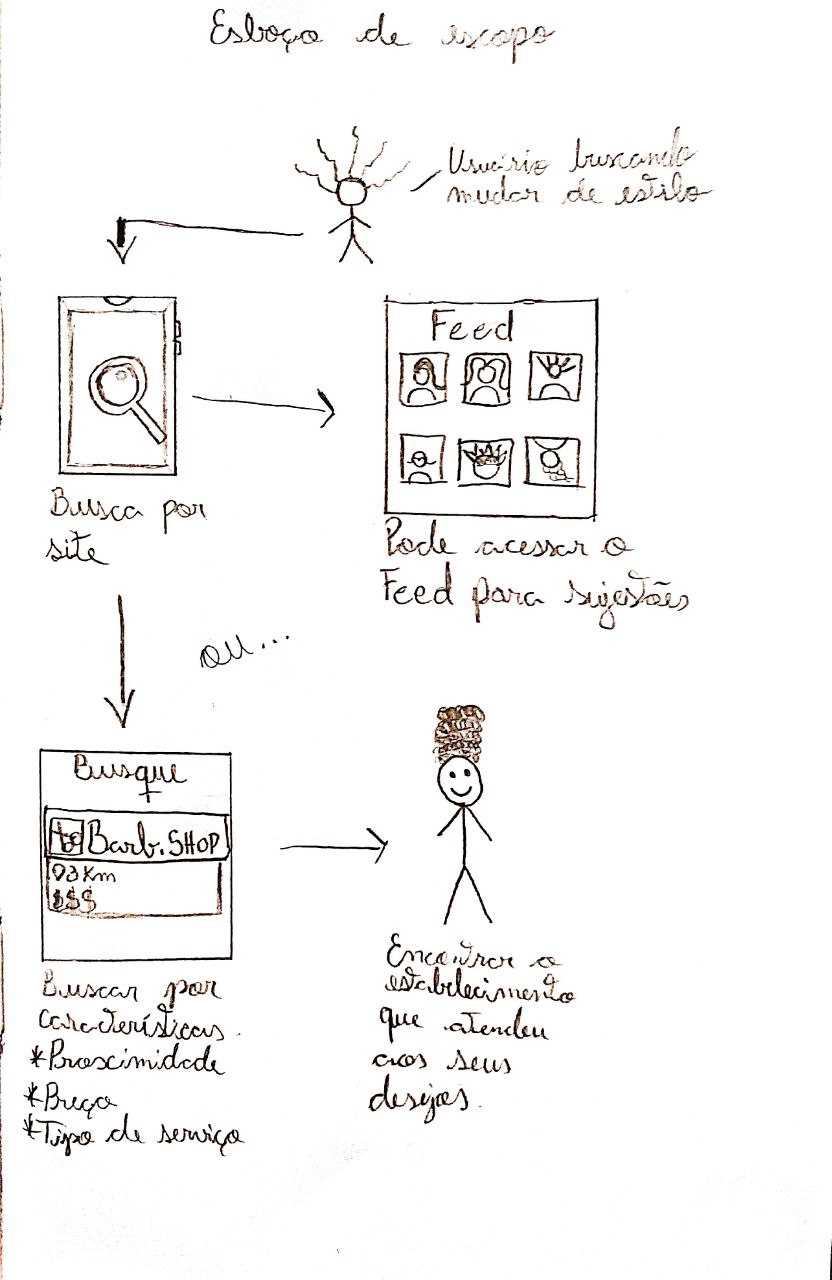 Esboço de escopo
Usuário buscando
mudar de estilo
Feed
Busca por
site
Pode acessar o
Feed para sujestões
ou...
Busque
Barb. SHOP
03 Km
$$$
Buscar por
características.
*Proscimidade
*Preço
*Tipo de serviço
Encontrar o
estabelecimento
que atendeu
aos seus
desejos.